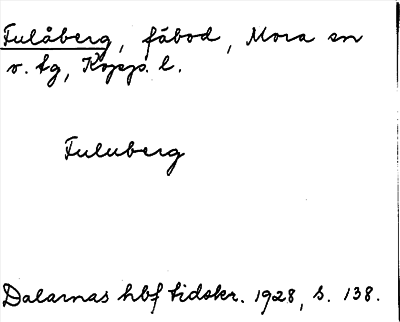 Fulåberg, fäbod, Mora sn
v. tg, Kopp. l.
Fuluberg
Dalarnas hbf tidskr. 1928, s. 138.